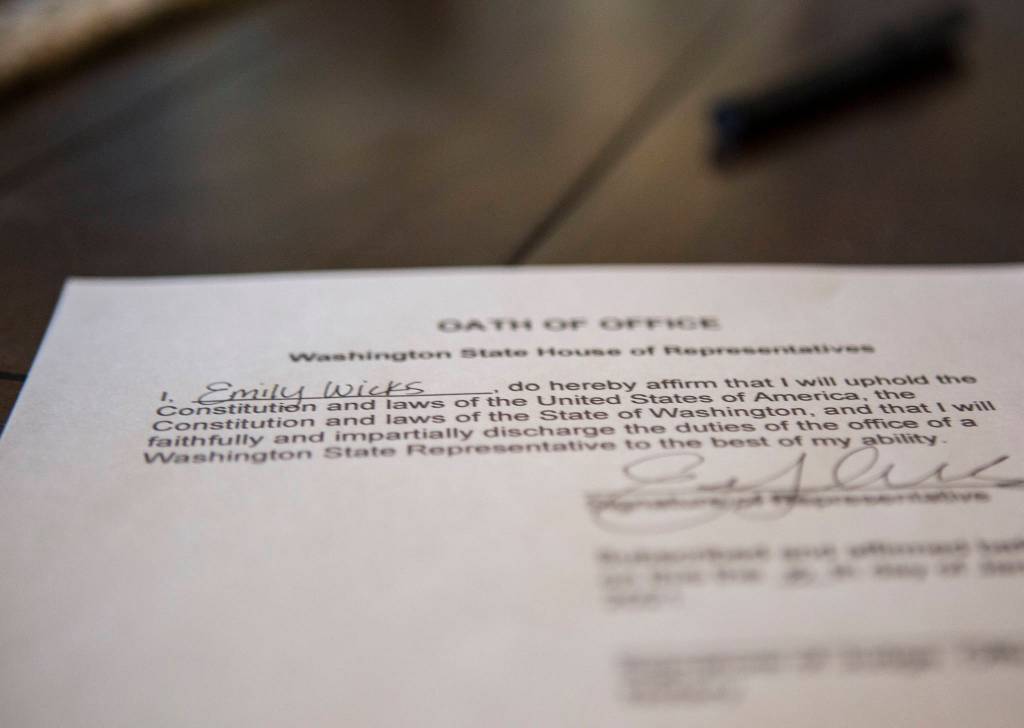 OATH OF OFFICE
Washington State House of Representatives
I, Emily Wicks, do hereby affirm that I will uphold the
Constitution and laws of the United States of America, the
Constitution and laws of the State of Washington, and that I will
faithfully and impartially discharge the duties of the office of a
Washington State Representative to the best of my ability.
Signature of Representative
Subscribed and affirmed
on this the day of